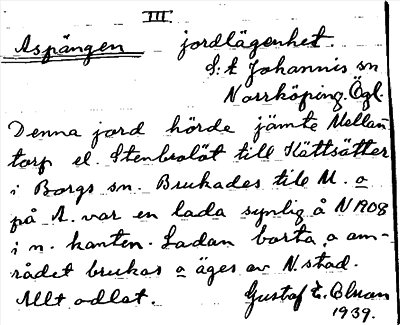 III
Aspängen jordlägenhet.
S:t Johannis sn
Norrköping. Ögl.
Denna jord hörde jämte Mellan
torp el. Stenbrolöt till Hättsätter
i Borgs sn. Brukades till M. o
på A. var en lada synlig å NROS
i n. kanten. Ladan borta o om-
rådet brukas o äges av N. stad.
Allt odlat. Gustaf E.
1939.